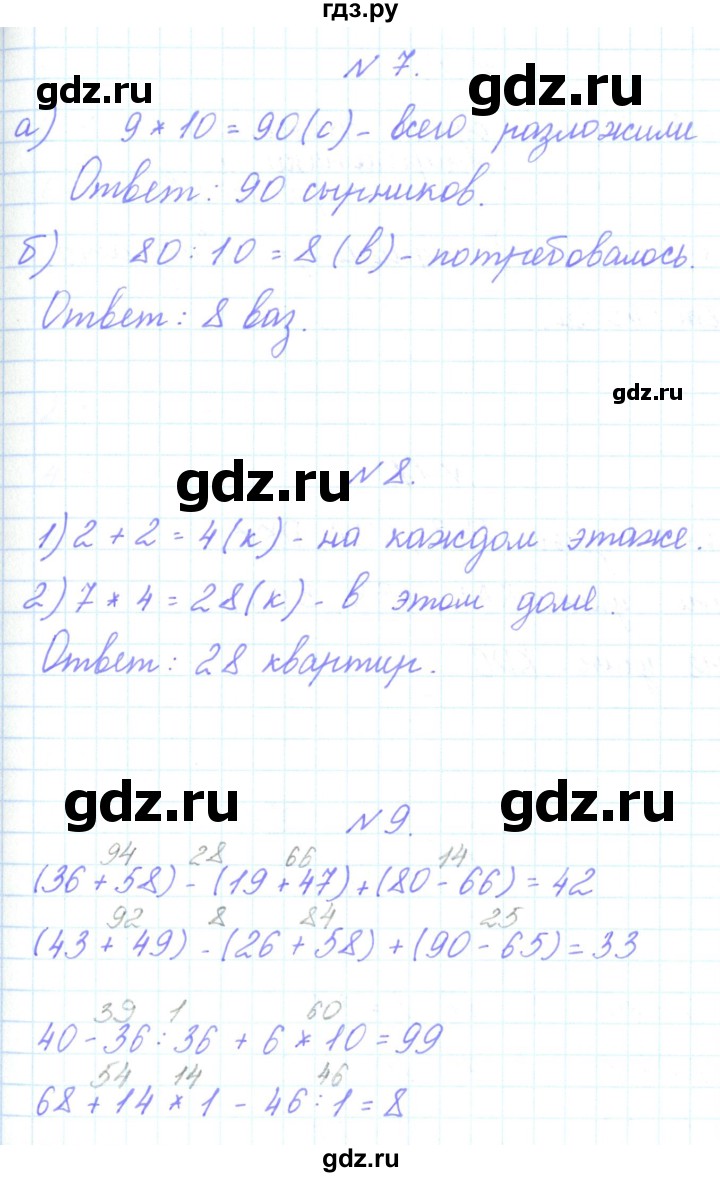 гдз.ру
№ 7.
gdz.ru gdz.ru
а) 9 * 10 = 90 (с) - всего разложили
Ответ: 90 сырников.
б) 80 : 10 = 8 (в) - потребовалось.
Ответ: 8 ваз.
gdz.ru
№ 8.
gdz.ru
1) 2 + 2 = 4 (к) - на каждом этаже.
2) 7 * 4 = 28 (к) - в этом доме.
Ответ: 28 квартир.
gdz.ru gdz.ru
№ 9.
94 28 66 14
(36 + 58) - (19 + 47) + (80 - 66) = 42
92 8 84 25
(43 + 49) - (26 + 58) + (90 - 65) = 33
39 1 60
40 - 36 : 36 + 6 * 10 = 99
54 14 46
68 + 14 * 1 - 46 : 1 = 8
gdz.ru